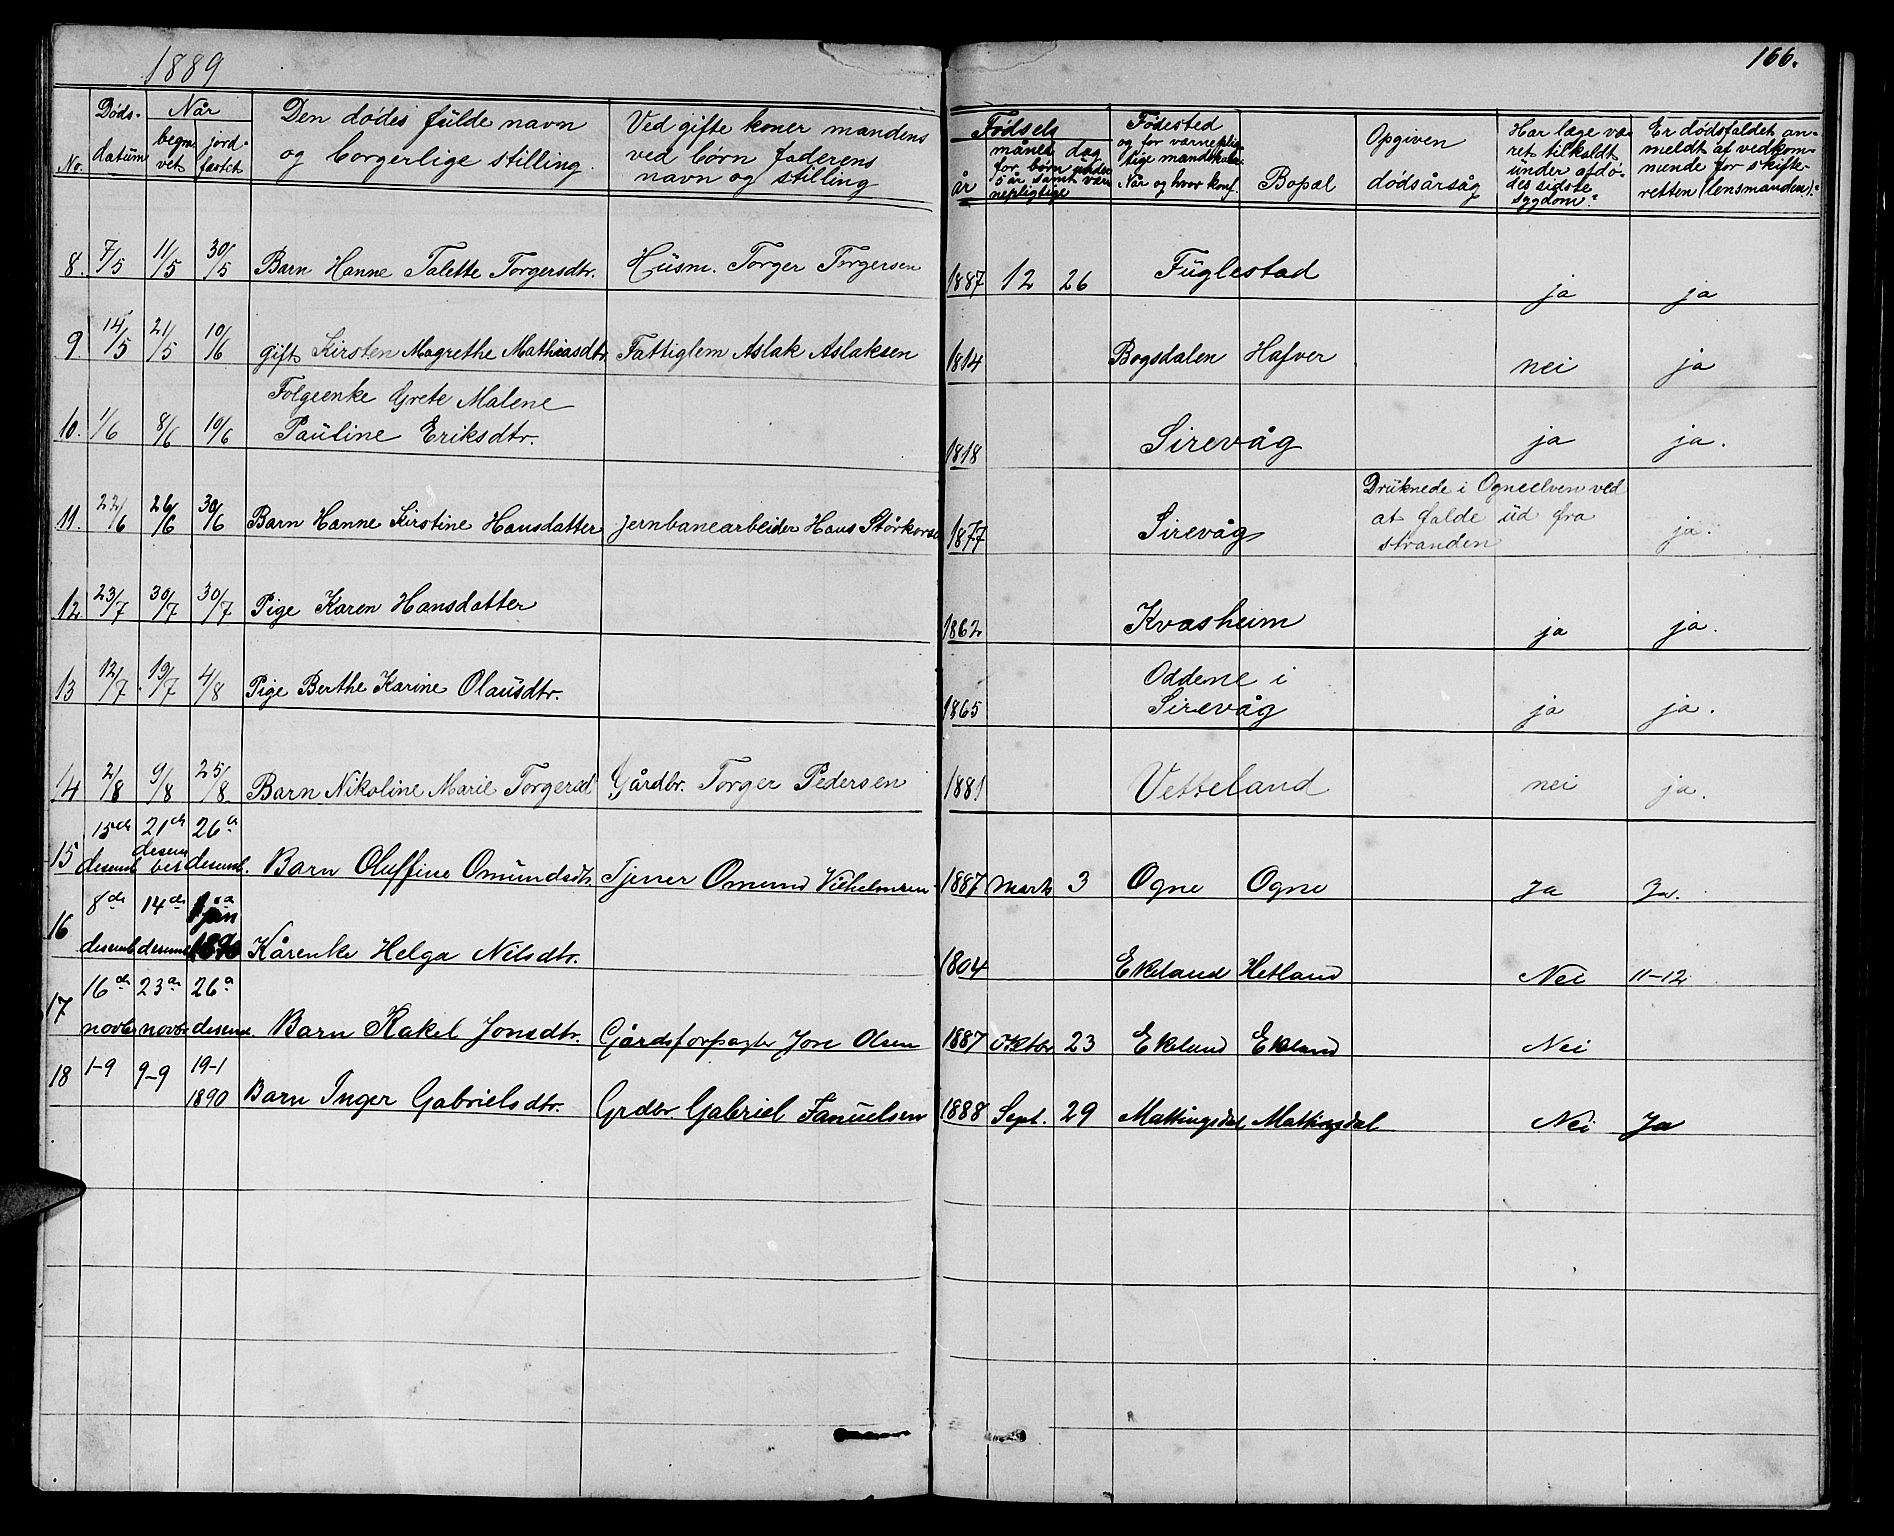 1889
166.
No. Døds-datum Når begravet jordfæstet Den dødes fulde navn og borgerlige stilling. Ved gifte koner mandens ved børn faderens navn og stilling Fødsels år måned dag for børn under 5 år samt værnepligtige Fødested og for værnepligtige mandskaber Når og hvor konf. Bopæl Opgiven dødsårsåg Har læge været tilkaldt under afdødes sidste sygdom? Er dødsfaldet anmeldt af vedkommende for skifteretten (lensmanden)?
8. 7/5 11/5 30/5 Barn Hanne Talette Torgersdtr. Husm. Torger Torgersen 1887 12 26 Fuglestad ja ja
9. 14/5 21/5 10/6 gift Kirsten Magrethe Mathiasdtr Fattiglem Aslak Aslaksen 1814 Bogsdalen Hafver nei ja
10. 1/6 8/6 10/6 Folgeenke Grete Malene
Pauline Eriksdtr. 1818 Sirevåg ja ja.
11. 22/6 26/6 30/6 Barn Hanne Kirstine Hansdatter jernbanearbeider Hans 1877 Sirevåg Druknede i Ogneelven ved
at falde ud fra
stranden ja.
12. 23/7 30/7 30/7 Pige Karen Hansdatter 1862 Kvasheim ja ja.
13 12/7 19/7 4/8 Pige Berthe Karine Olausdtr. 1865 Oddene i
Sirevåg ja ja.
14 2/8 9/8 25/8 Barn Nikoline Marie Torgersd Gårdbr. Torger Pedersen 1881 Vetteland nei ja.
15 15de desemb 21de desember 26de desemb. Barn Oluffine Omundsdtr. Tjener Omund Vilhelmsen 1887 Marts 3 Ogne Ogne Ja Ja.
16 8de desemb 14de desemb 1 jan 1890 Kårenke Helga Nilsdtr. 1804 Ekeland Hetland Nei 11-12
17 16de novbr 23de novbr 26de desemb. Barn Rakel Jonsdtr. Gårdsforpagter Jon Olsen 1887 Oktbr 23 Ekeland Ekeland Nei
18 1-9 9-9 19-1
1890 Barn Inger Gabrielsdtr. Grdbr Gabriel Fanuelsen 1888 Sept. 29 Mattingsdal Mattingsdal Nei Ja